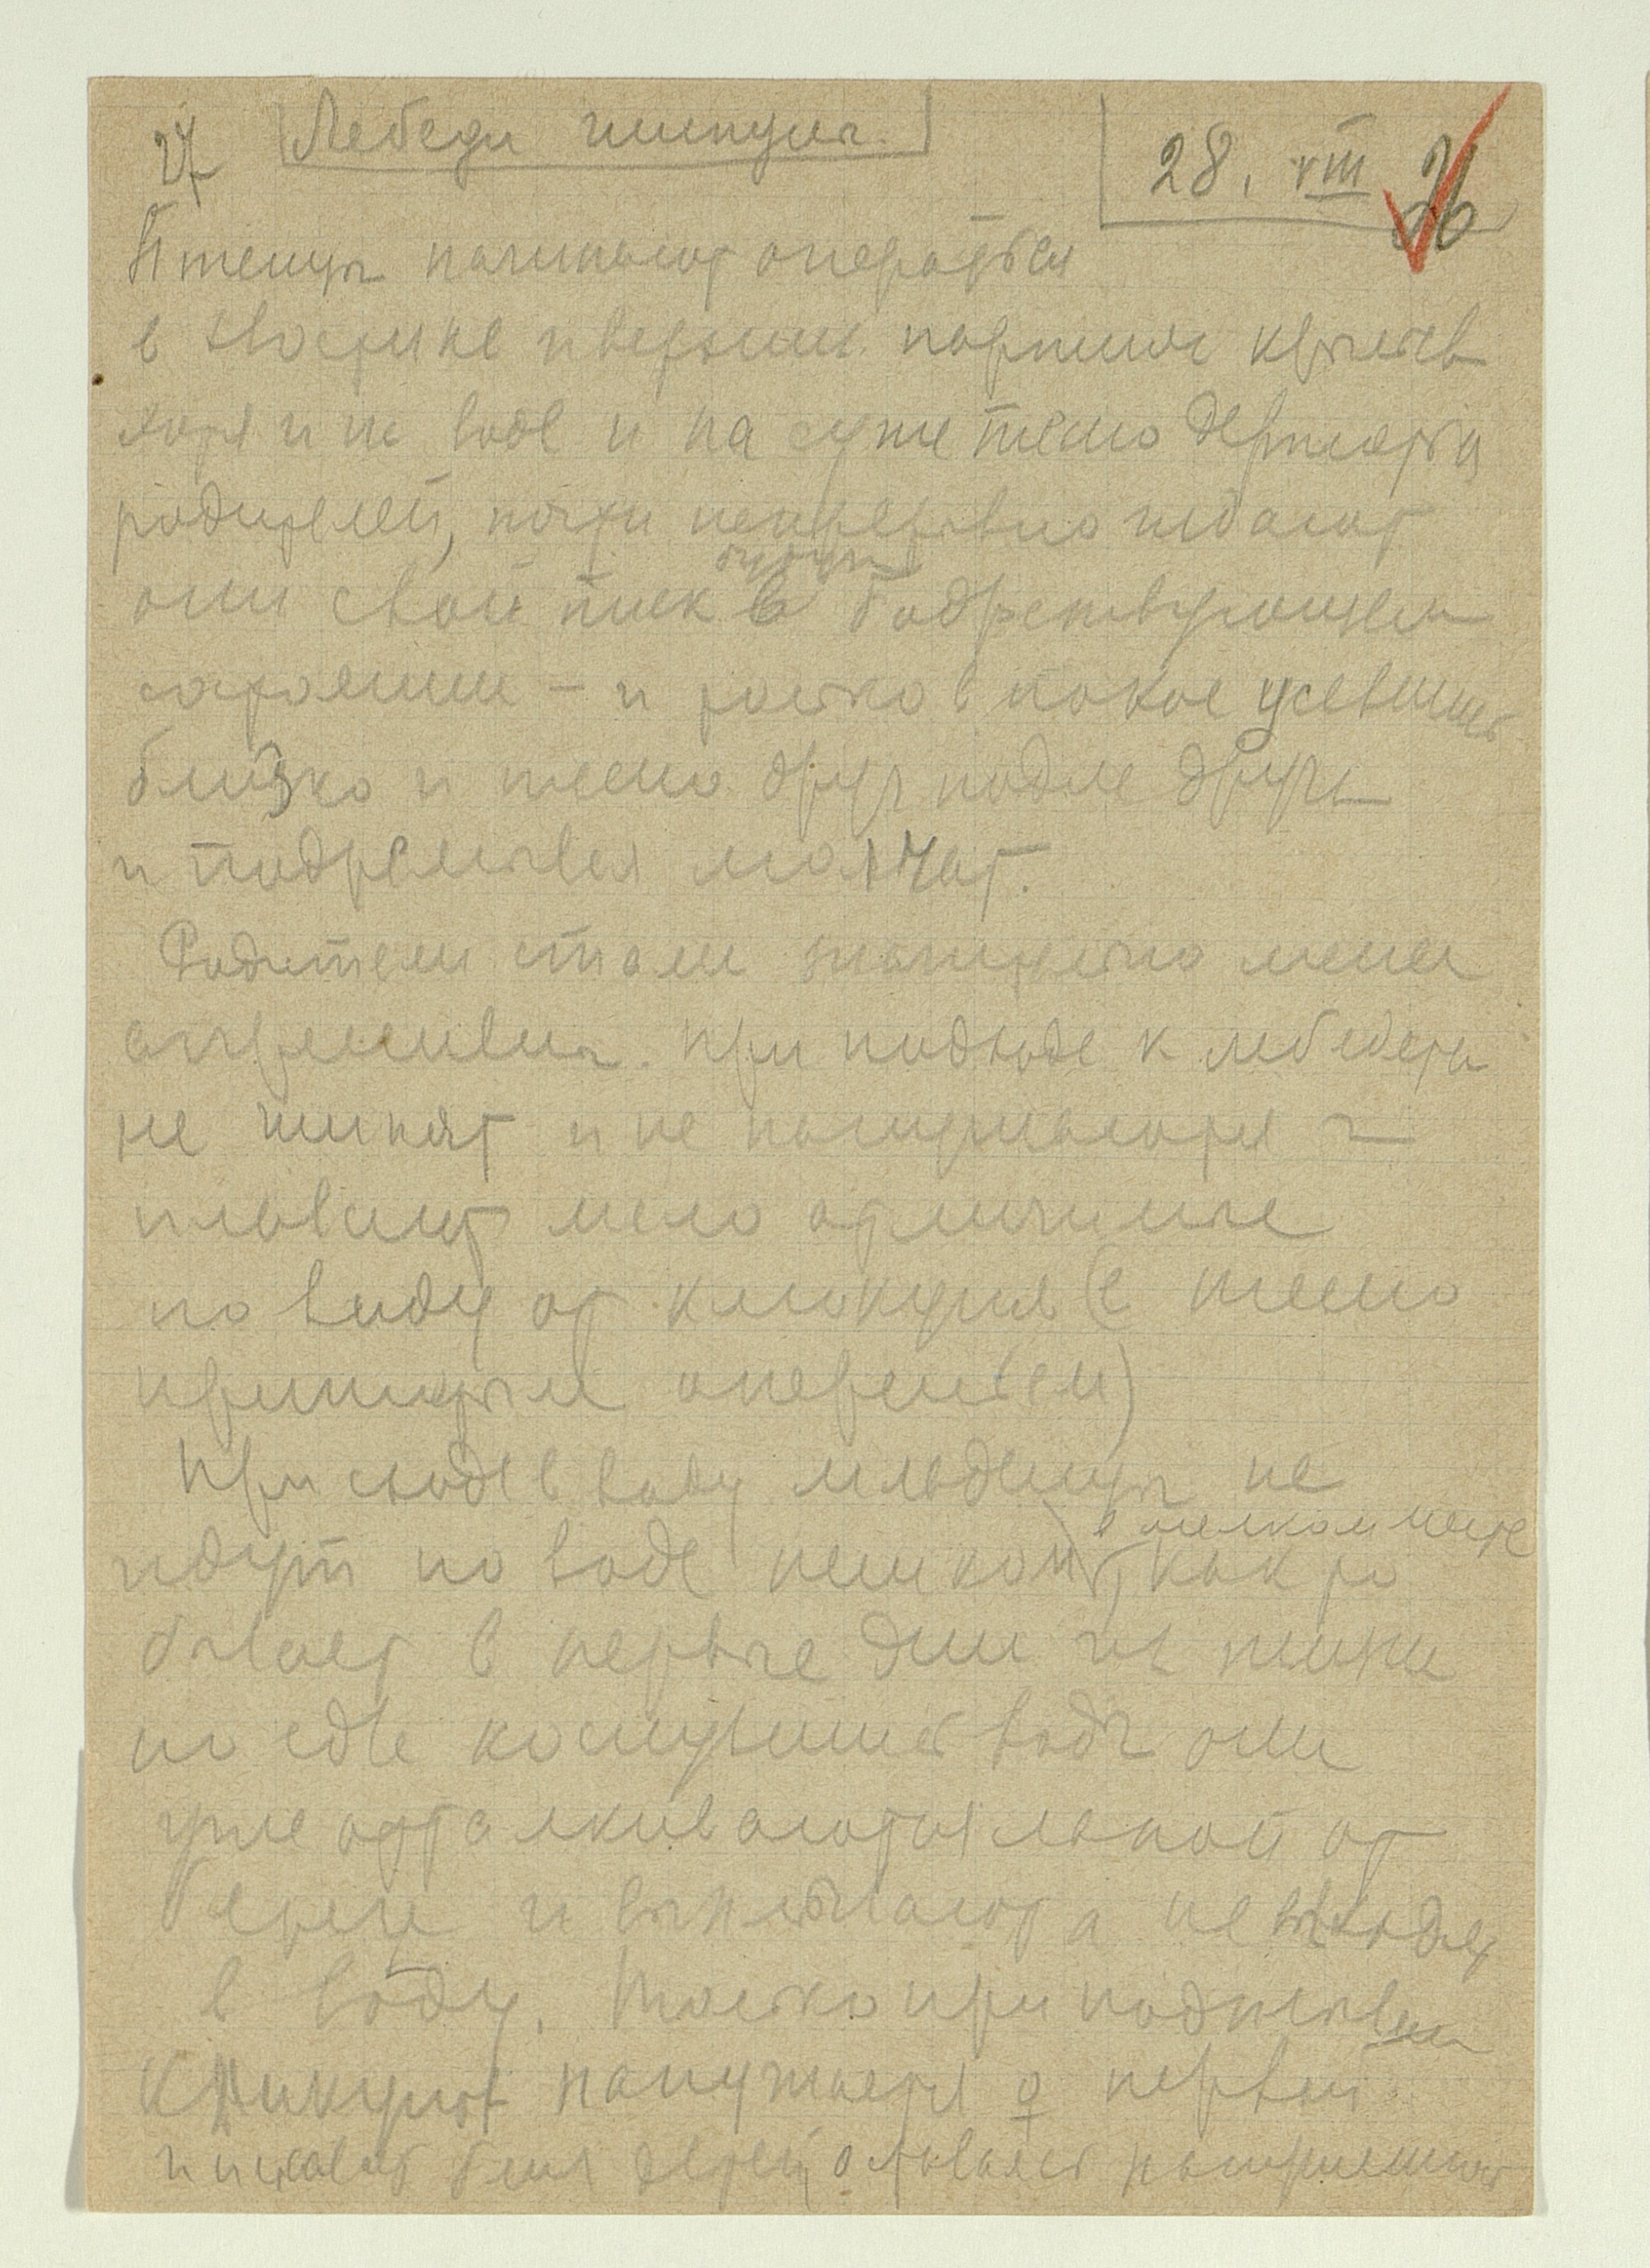 27 Лебеди шипуны. 28. VIII 26
Птенцы начинают оперяться
в хвостике и верхние крыльев
хотя и на воде и на суше тесно держатся
родителей, почти непрерывно издают
они свой писк в бодрствующем
будучи
состоянии — и только в покое усевшись
близко и тесно друг подле друга
и подремывая молчат.
Родители стали значительно менее
агрессивны. При подходе к лебедятам
не шипят и не напуживаются —
плавают мало отличные
по виду от кликунов (с тесно
прижатым опереньем)
При сходе в воду младенцы не
идут по воде пешком, как то
в мелком месте
бывает в первые дни их жизни
но едва коснувшись воды они
уже отталкиваются лапой от
берега и выплывают а не входят
в воду. Только при подплывании
кликунов напужается ♀ первый
и шипит близ детей, оставаясь